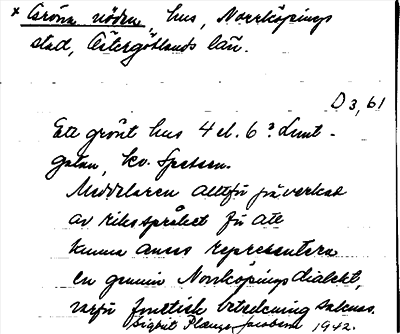 × Gröna nöden, hus, Norrköpings
stad, Östergötlands län.
D 3, 61
Ett grönt hus 4 el. 6? Lunt-
gatan, kv. Spetsen.
Meddelaren alltför påverkad
av riksspråket för att
kunna anses representera
en genuin Norrköpingsdialekt,
varför fonetisk beteckning saknas.
Sigbrit Plænge Jacobson 1942.